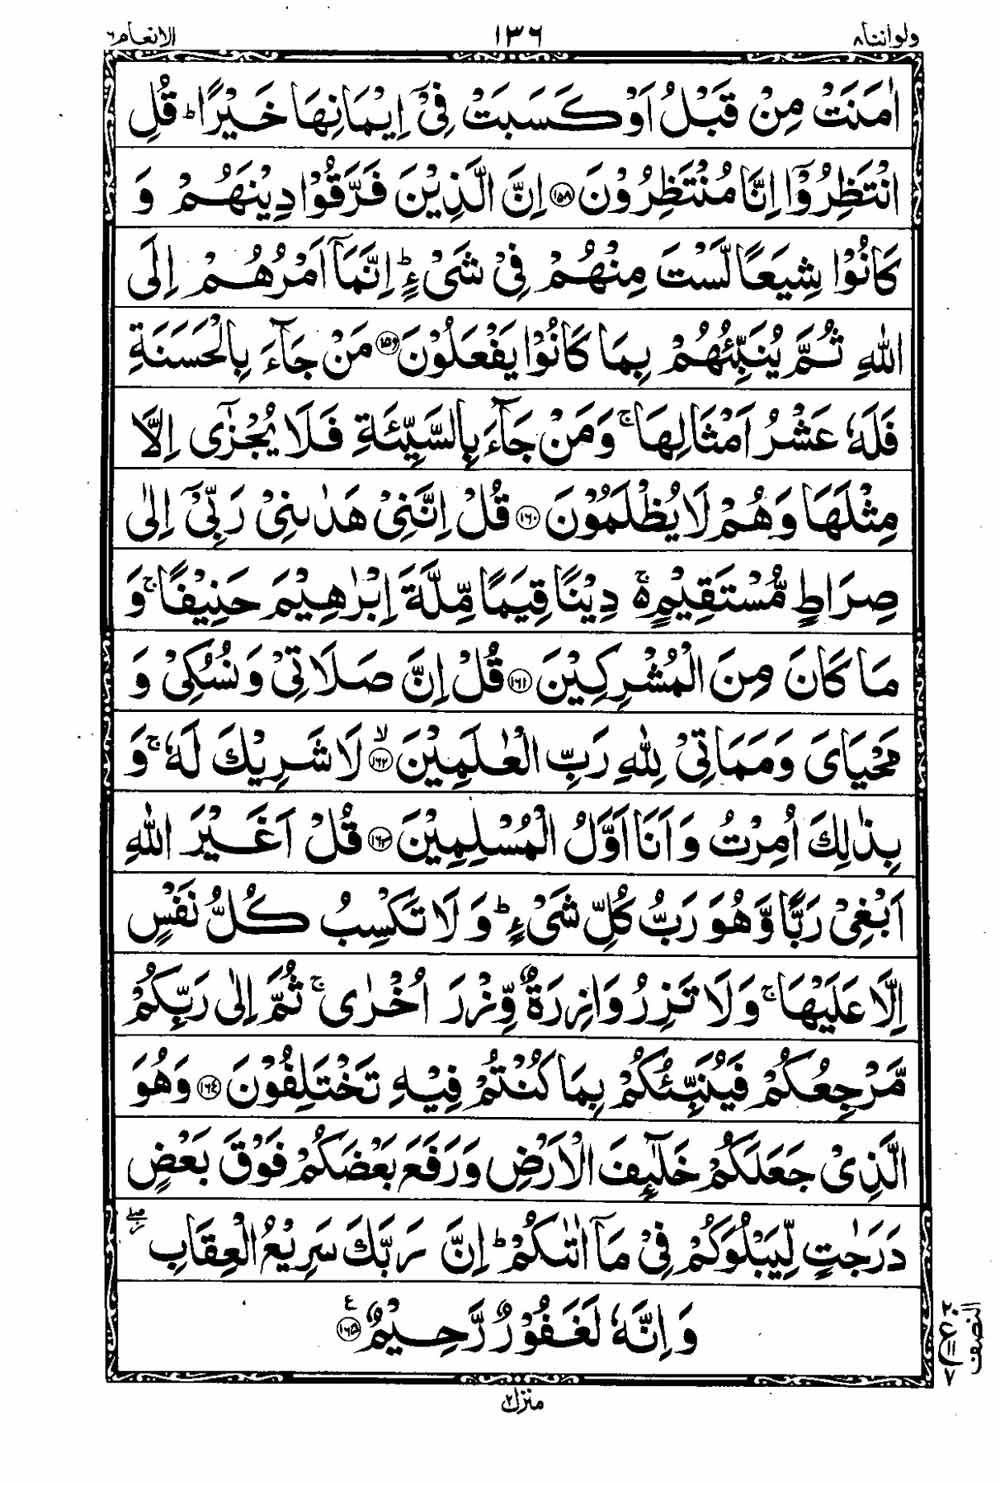 ولواننا٨ ١٣٦ الانعام٦
اٰمَنَتْ مِنْ قَبْلُ اَوْ كَسَبَتْ فِیْۤ اِیْمَانِهَا خَیْرًاؕ قُلِ
انْتَظِرُوْۤا اِنَّا مُنْتَظِرُوْنَ ﴿١٥٨﴾ اِنَّ الَّذِیْنَ فَرَّقُوْا دِیْنَهُمْ وَ
كَانُوْا شِیَعًا لَّسْتَ مِنْهُمْ فِیْ شَیْءٍؕ اِنَّمَاۤ اَمْرُهُمْ اِلَی
اللّٰهِ ثُمَّ یُنَبِّئُهُمْ بِمَا كَانُوْا یَفْعَلُوْنَ ﴿١٥٩﴾ مَنْ جَآءَ بِالْحَسَنَةِ
فَلَهٗ عَشْرُ اَمْثَالِهَاۚ وَمَنْ جَآءَ بِالسَّیِّئَةِ فَلَا یُجْزٰۤی اِلَّا
مِثْلَهَا وَهُمْ لَا یُظْلَمُوْنَ ﴿١٦٠﴾ قُلْ اِنَّنِیْ هَدٰىنِیْ رَبِّیْۤ اِلٰی
صِرَاطٍ مُّسْتَقِیْمٍ۬ۚ دِیْنًا قِیَمًا مِّلَّةَ اِبْرٰهِیْمَ حَنِیْفًاۚ وَ
مَا كَانَ مِنَ الْمُشْرِكِیْنَ ﴿١٦١﴾ قُلْ اِنَّ صَلَاتِیْ وَنُسُكِیْ وَ
مَحْیَایَ وَمَمَاتِیْ لِلّٰهِ رَبِّ الْعٰلَمِیْنَۙ ﴿١٦٢﴾ لَا شَرِیْكَ لَهٗۚ وَ
بِذٰلِكَ اُمِرْتُ وَاَنَا اَوَّلُ الْمُسْلِمِیْنَ ﴿١٦٣﴾ قُلْ اَغَیْرَ اللّٰهِ
اَبْغِیْ رَبًّا وَّهُوَ رَبُّ كُلِّ شَیْءٍؕ وَلَا تَكْسِبُ كُلُّ نَفْسٍ
اِلَّا عَلَیْهَاۚ وَلَا تَزِرُ وَازِرَةٌ وِّزْرَ اُخْرٰیۚ ثُمَّ اِلٰی رَبِّكُمْ
مَّرْجِعُكُمْ فَیُنَبِّئُكُمْ بِمَا كُنْتُمْ فِیْهِ تَخْتَلِفُوْنَ ﴿١٦٤﴾ وَهُوَ
الَّذِیْ جَعَلَكُمْ خَلٰٓىِٕفَ الْاَرْضِ وَرَفَعَ بَعْضَكُمْ فَوْقَ بَعْضٍ
دَرَجٰتٍ لِّیَبْلُوَكُمْ فِیْ مَاۤ اٰتٰىكُمْؕ اِنَّ رَبَّكَ سَرِیْعُ الْعِقَابِ ۖ
وَاِنَّهٗ لَغَفُوْرٌ رَّحِیْمٌ ﴿١٦٥﴾ ع
النصف
٢٠
ع
١١
٧
منزل٢